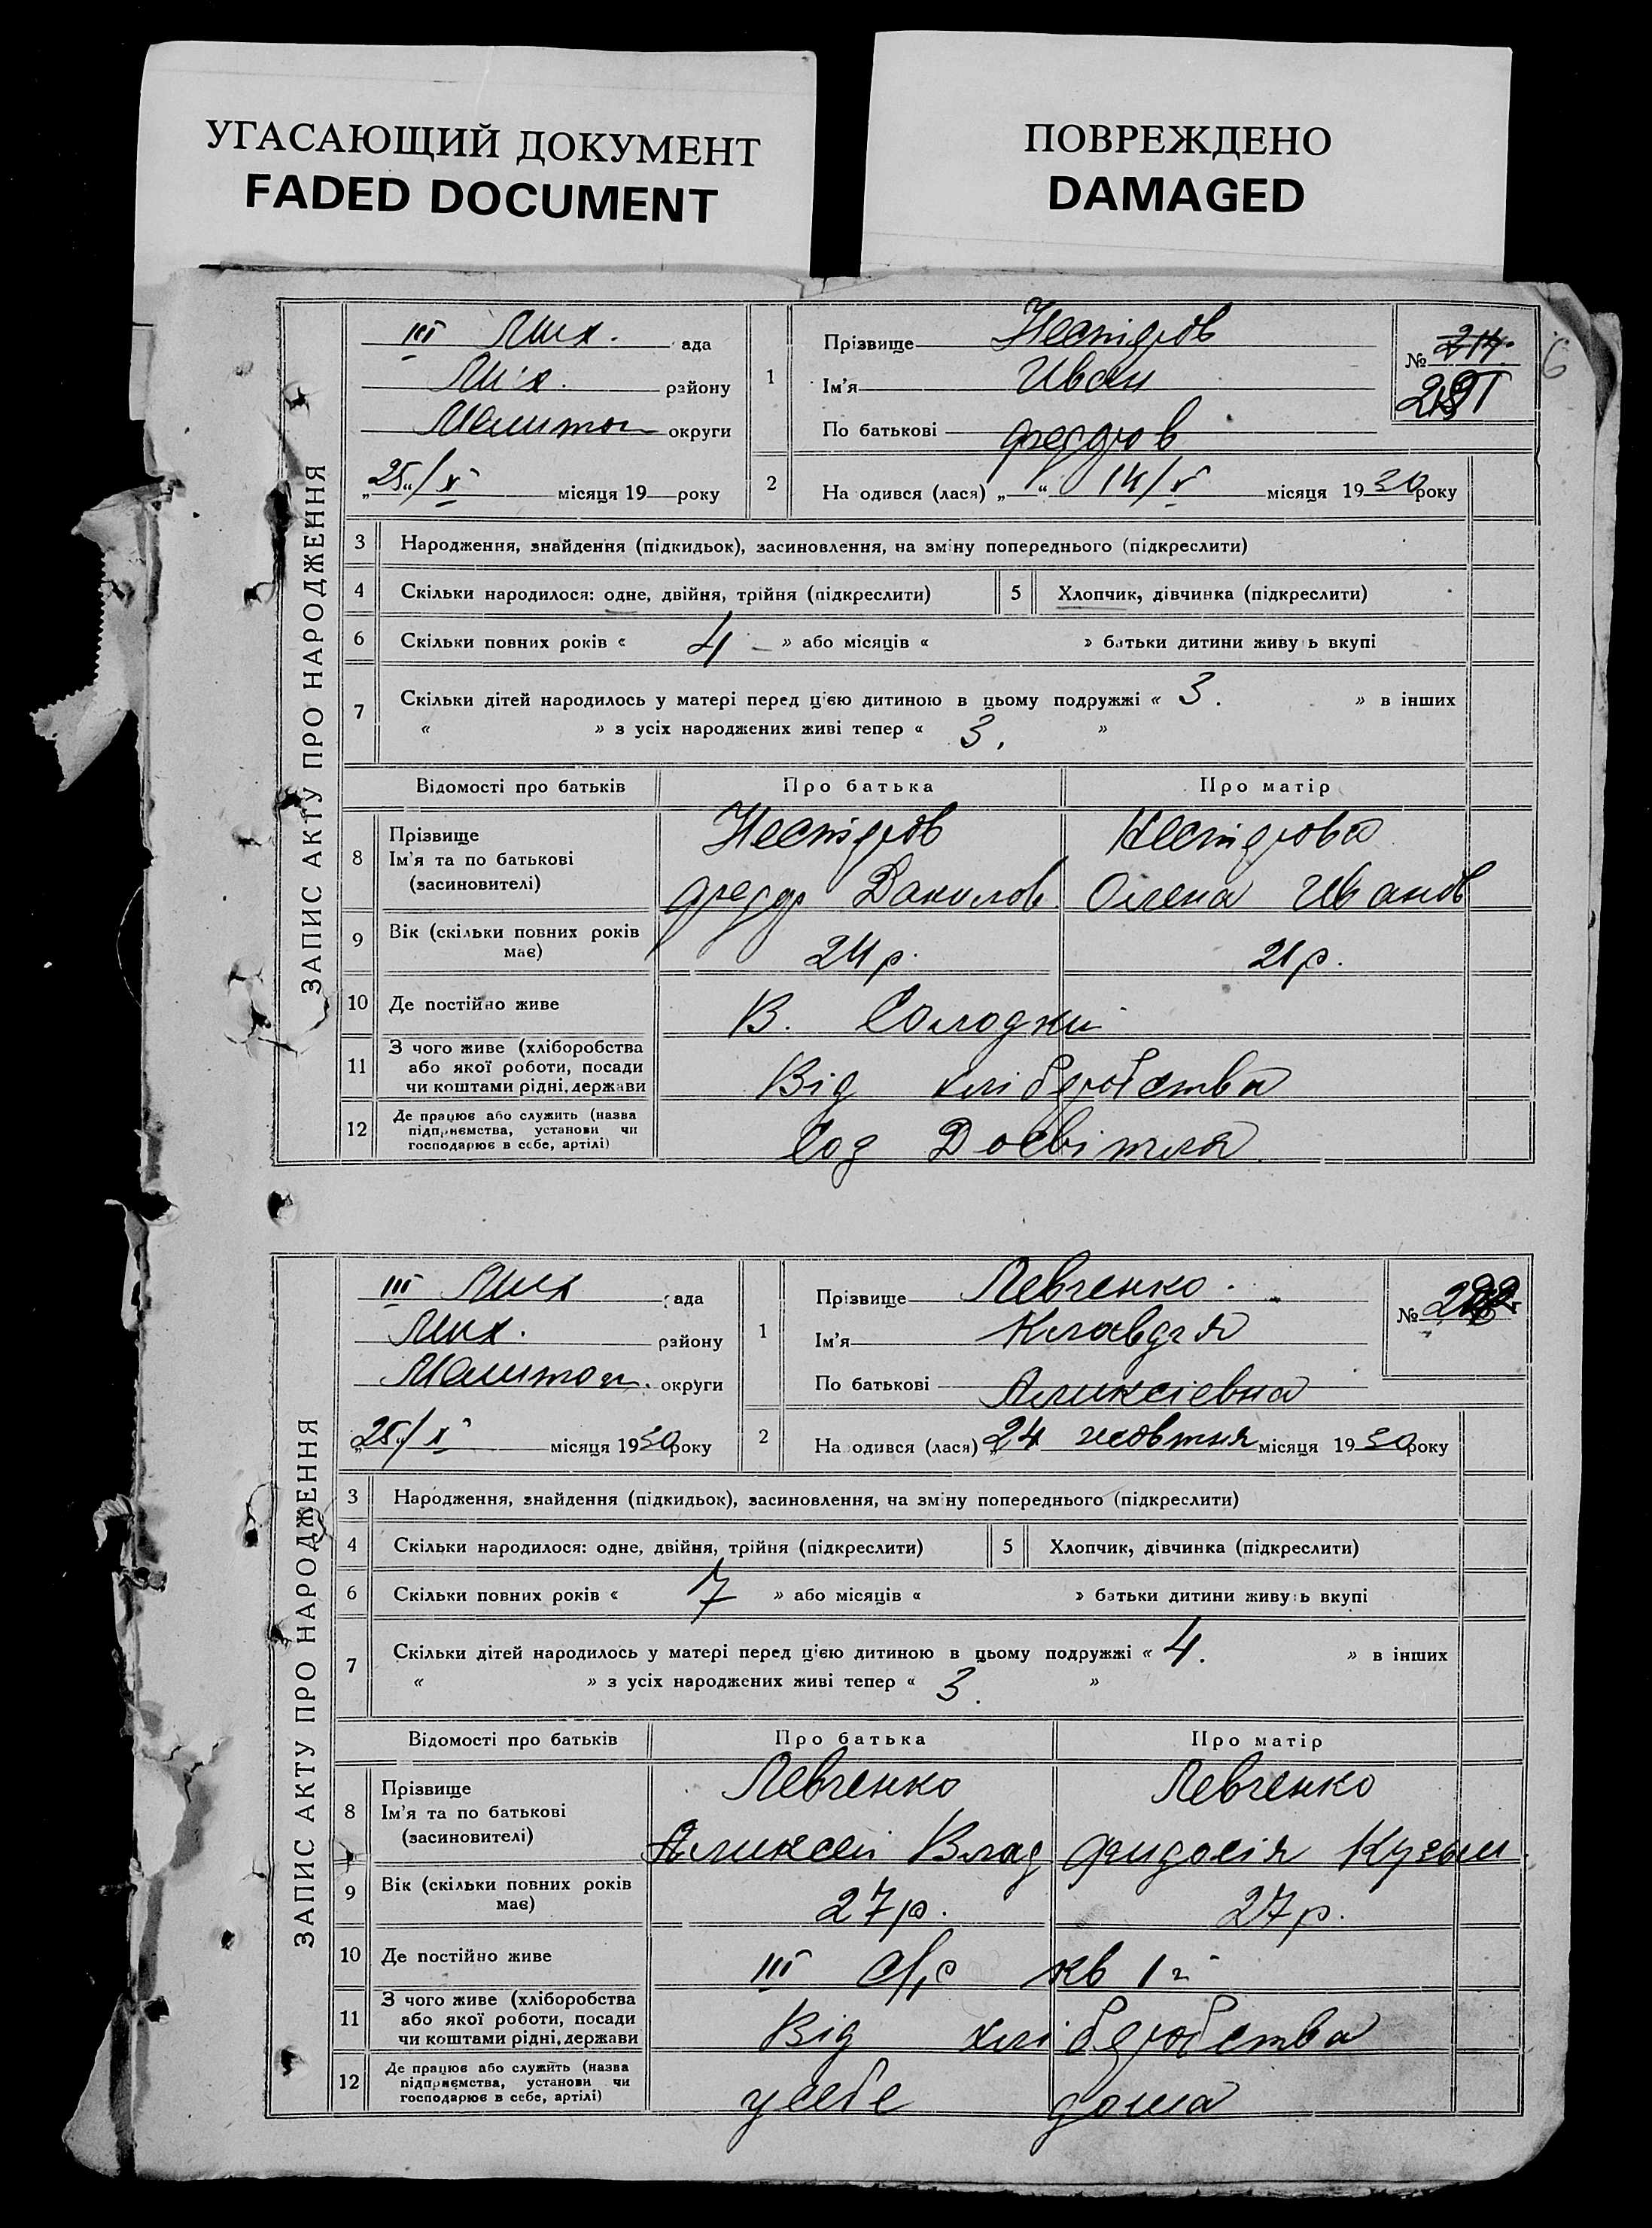 УГАСАЮЩИЙ ДОКУМЕНТ
FADED DOCUMENT
ПОВРЕЖДЕНО
DAMAGED
6
ЗАПИС АКТУ ПРО НАРОДЖЕННЯ
III Мих. ада
Мих. району
Мелитоп округи
„25“/X місяця 19 року
1 Прізвище Нестіров
Ім'я Иван
По батькові Федоров
№ 214. 221
2 На одився (лася) „ “ 14/X місяця 1930 року
3 Народження, знайдення (підкидьок), засиновлення, на зміну попереднього (підкреслити)
4 Скільки народилося: одне, двійня, трійня (підкреслити) 5 Хлопчик, дівчинка (підкреслити)
6 Скільки повних років « 4 - » або місяців « » батьки дитини живу ь вкупі
7 Скільки дітей народилось у матері перед цією дитиною в цьому подружжі « 3. » в інших
« » з усіх народжених живі тепер « 3. »
Відомості про батьків Про батька Про матір
8 Прізвище Нестіров Нестірова
Ім'я та по батькові
(засиновителі) Федор Данилов Олена Иванов
9 Вік (скільки повних років має) 24 р. 21 р.
10 Де постійно живе В. Солодкий
11 З чого живе (хліборобства
або якої роботи, посади
чи коштами рідні, держави Від хліборобства
12 Де працює або служить (назва
підприємства, установи чи
господарює в себе, артілі) Соз Досвітля
ЗАПИС АКТУ ПРО НАРОДЖЕННЯ
III Мих ада
Мих. району
Мелитоп. округи
„25“/X місяця 1930 року
1 Прізвище Левченко.
Ім'я Клавдія
По батькові Аликсіевна
№ 222
2 На одився (лася) „24 жовтня місяця 1930 року
3 Народження, знайдення (підкидьок), засиновлення, на зміну попереднього (підкреслити)
4 Скільки народилося: одне, двійня, трійня (підкреслити) 5 Хлопчик, дівчинка (підкреслити)
6 Скільки повних років « 7 » або місяців « » батьки дитини живу ь вкупі
7 Скільки дітей народилось у матері перед цією дитиною в цьому подружжі « 4. » в інших
« » з усіх народжених живі тепер « 3. »
Відомості про батьків Про батька Про матір
8 Прізвище Левченко Левченко
Ім'я та по батькові
(засиновителі) Аликсей Влад Фидосія Кузьм.
9 Вік (скільки повних років має) 27 р. 27 р.
10 Де постійно живе III с/р кв 1
11 З чого живе (хліборобства
або якої роботи, посади
чи коштами рідні, держави Від хліборобства
12 Де працює або служить (назва
підприємства, установи чи
господарює в себе, артілі) у себе дома